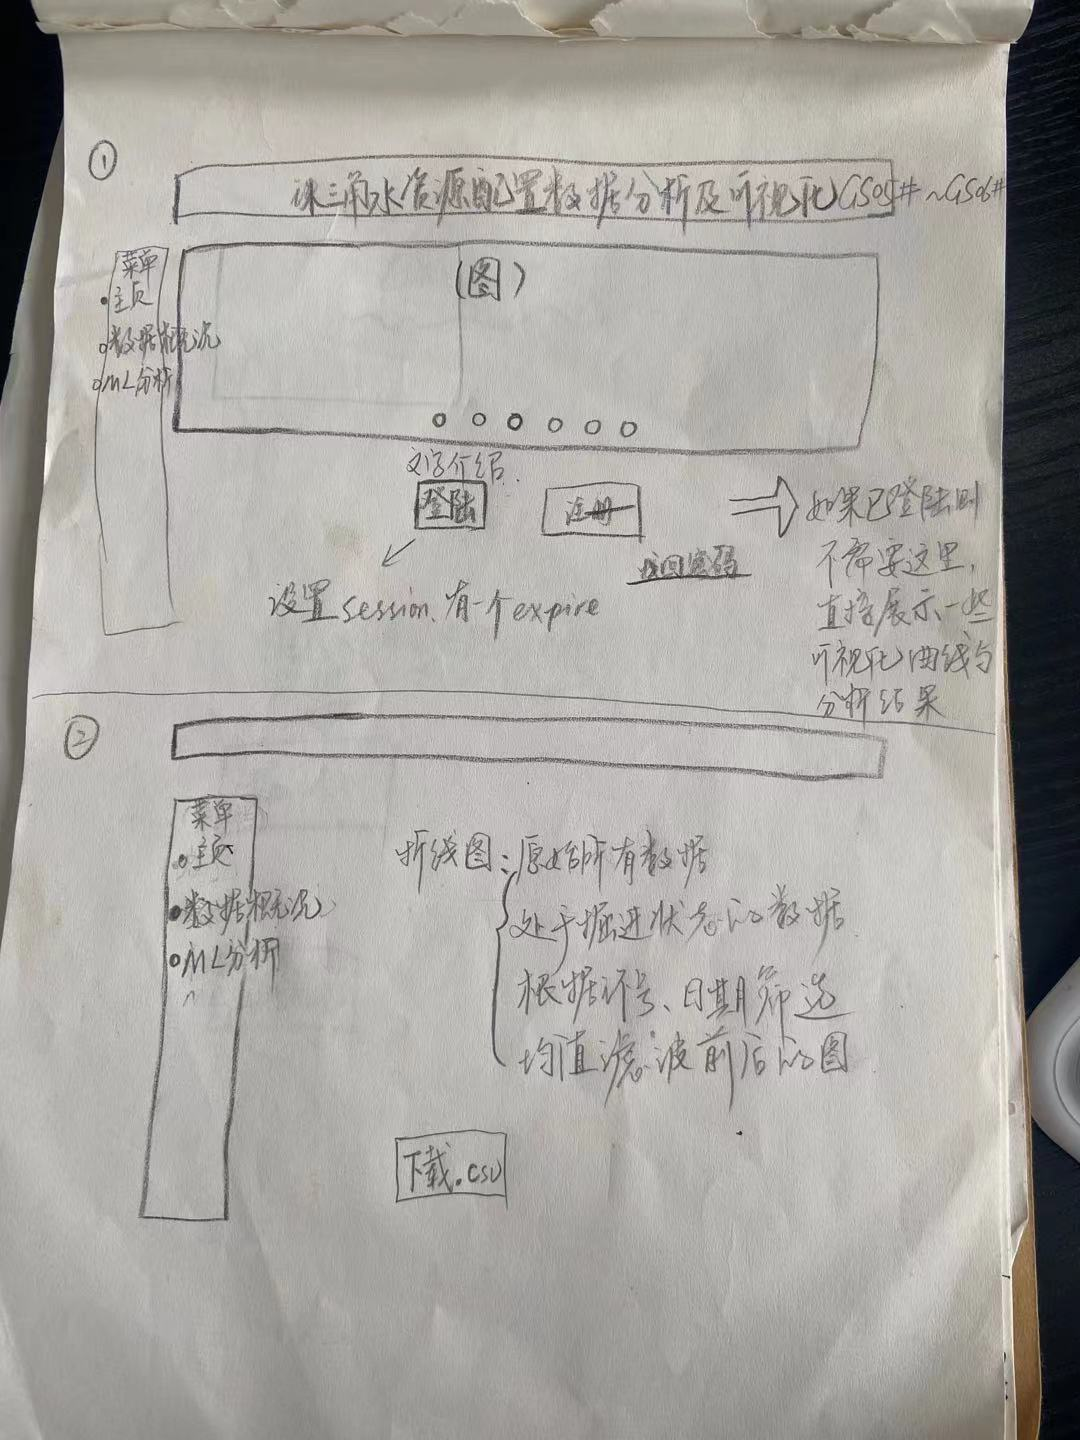 ①
珠三角水资源配置数据分析及可视化GS05#~GS06#
菜单
主页
数据概况
ML分析
(图)
文字介绍
登陆
注册
找回密码
设置session,有一个expire
如果已登陆则
不需要这里,
直接展示一些
可视化曲线与
分析结果
②
菜单
主页
数据概况
ML分析
折线图:原始所有数据
处于掘进状态的数据
根据环号、日期筛选
均值滤波前后的图
下载.csv